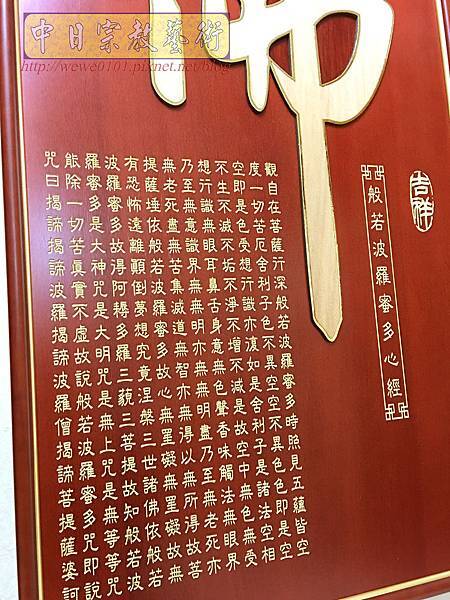 中日宗教藝術
http://wewe0101.pixnet.net/blog
佛
吉祥
般若波羅蜜多心經
觀自在菩薩行深般若波羅蜜多時照見五蘊皆空
度一切苦厄舍利子色不異空空不異色色即是空
空即是色受想行識亦復如是舍利子是諸法空相
不生不滅不垢不淨不增不減是故空中無色無受
想行識無眼耳鼻舌身意無色聲香味觸法無眼界
乃至無意識界無無明亦無無明盡乃至無老死亦
無老死盡無苦集滅道無智亦無得以無所得故菩
提薩埵依般若波羅蜜多故心無罣礙無罣礙故無
有恐怖遠離顛倒夢想究竟涅槃三世諸佛依般若
波羅蜜多故得阿耨多羅三藐三菩提故知般若波
羅蜜多是大神咒是大明咒是無上咒是無等等咒
能除一切苦真實不虛故說般若波羅蜜多咒即說
咒曰揭諦揭諦波羅揭諦波羅僧揭諦菩提薩婆訶